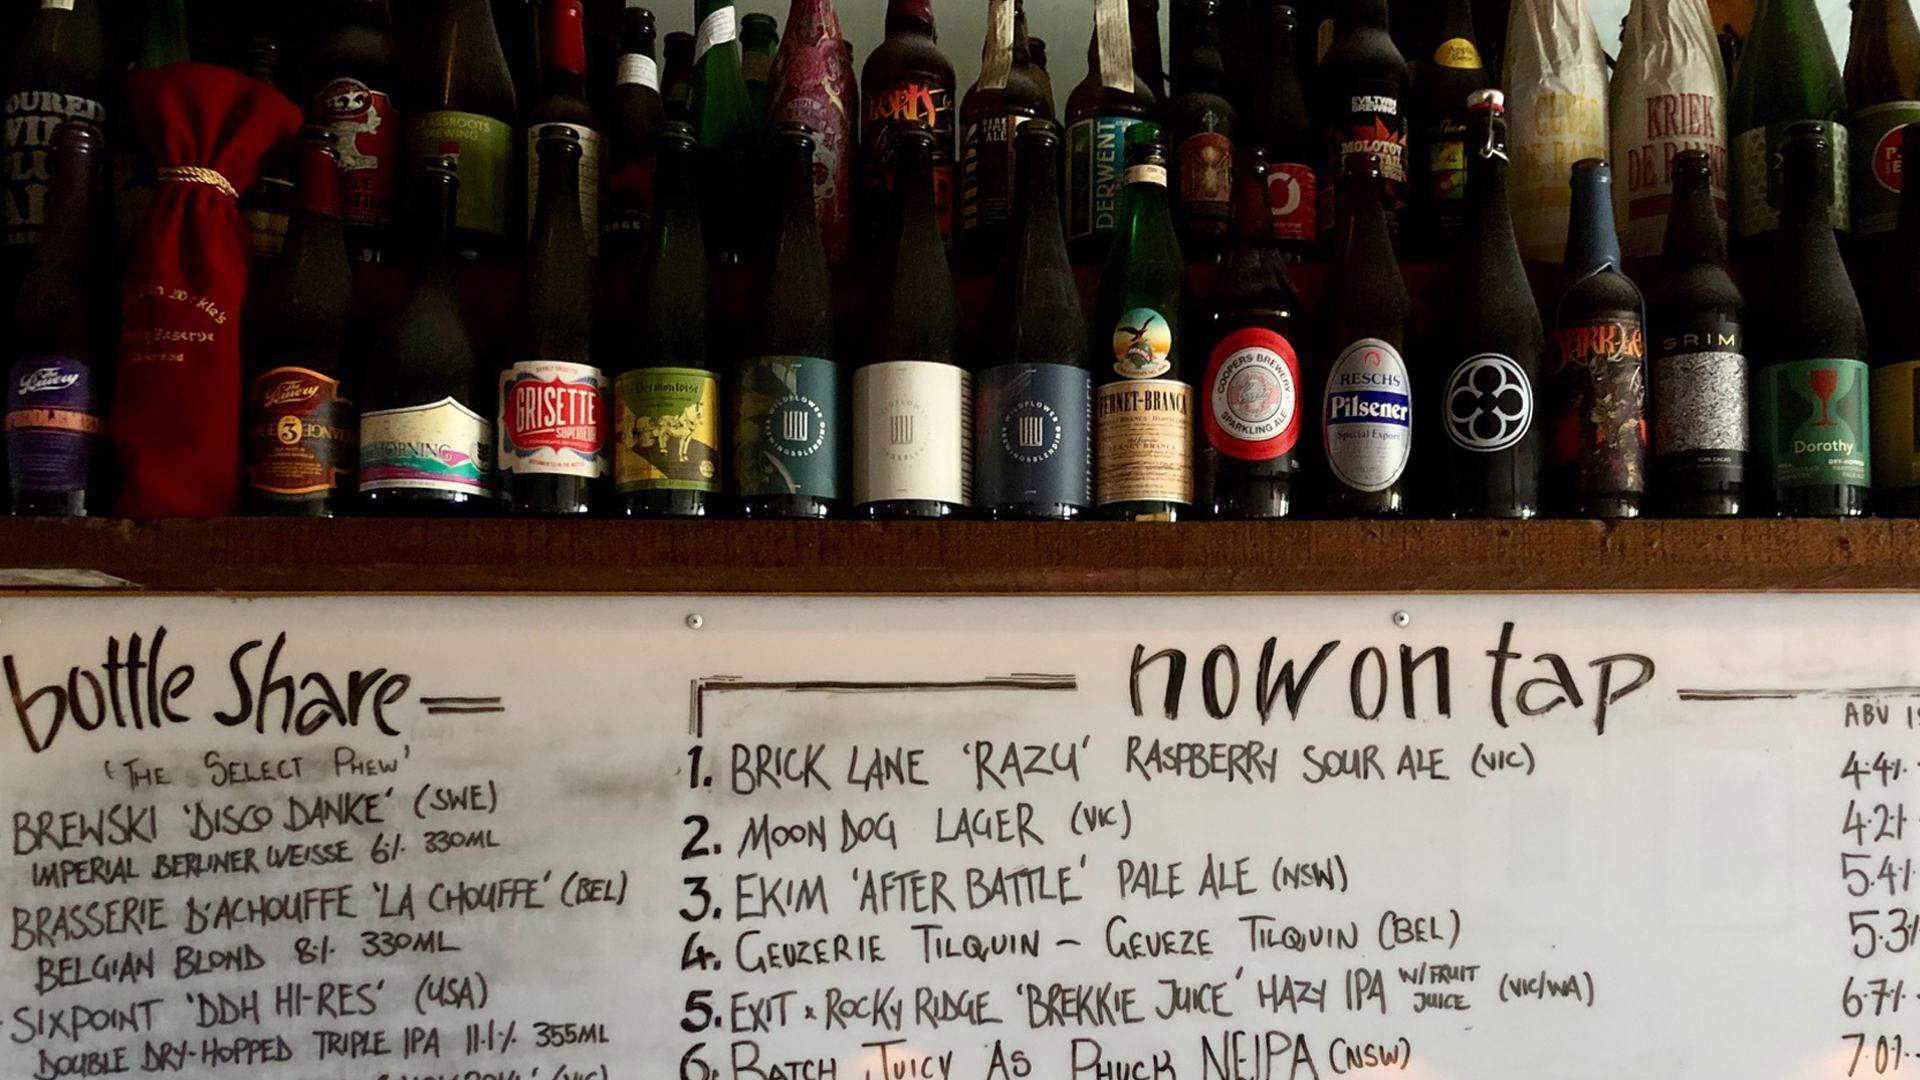 OURED
GRASSROOTS
BREWING
YORK
DARK
ALE
DERWENT
EVILTWIN
BREWING
MOLOTOV
KRIEK
DE RANKE
Reserve
The Bruery
The Bruery
3
MORNING
GRISETTE
Vermontoise
WILDFLOWER
BREWING & BLENDING
WILDFLOWER
WILDFLOWER
FERNET-BRANCA
COOPERS BREWERY
SPARKLING ALE
RESCHS
Pilsener
Special Export
GRIM
Dorothy
bottle share
'THE SELECT PHEW'
BREWSKI 'DISCO DANKE' (SWE)
IMPERIAL BERLINER WEISSE 6% 330ML
BRASSERIE D'ACHOUFFE 'LA CHOUFFE' (BEL)
BELGIAN BLOND 8% 330ML
SIXPOINT 'DDH HI-RES' (USA)
DOUBLE DRY-HOPPED TRIPLE IPA 11.1% 355ML
now on tap
ABV
1. BRICK LANE 'RAZU' RASPBERRY SOUR ALE (VIC) 4.4%
2. MOON DOG LAGER (VIC) 4.2%
3. EKIM 'AFTER BATTLE' PALE ALE (NSW) 5.4%
4. GEUZERIE TILQUIN - GEUEZE TILQUIN (BEL) 5.3%
5. EXIT x ROCKY RIDGE 'BREKKIE JUICE' HAZY IPA W/FRUIT JUICE (VIC/WA) 6.7%
6. BATCH JUICY AS PHUCK NEIPA (NSW) 7.0%